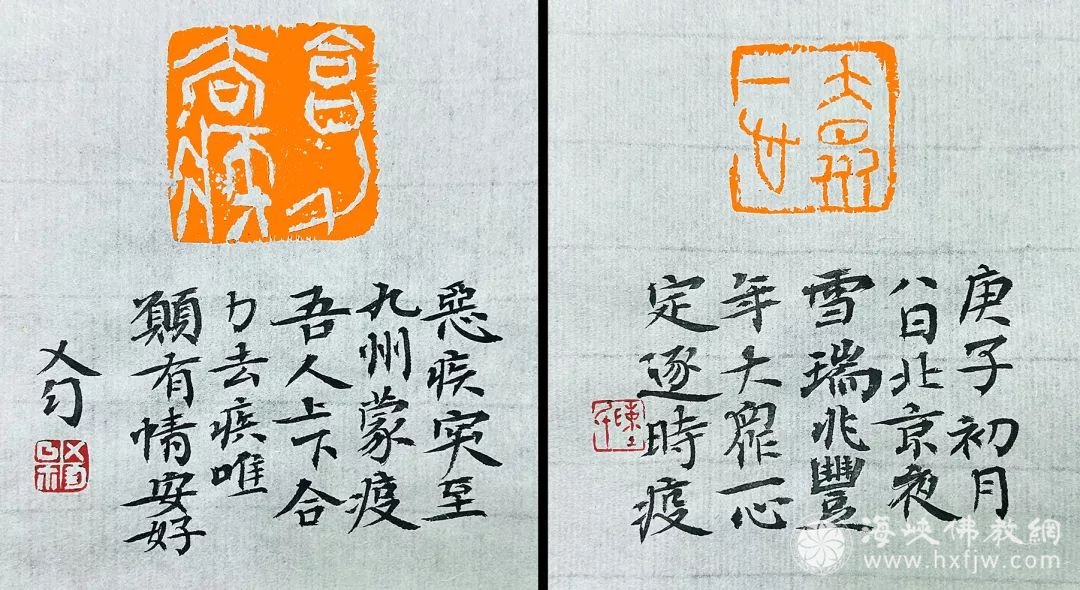 惡疾突至
九州蒙疫
吾人上下合
力去疾唯
願有情安好
庚子初月
八日北京夜
雪瑞兆豐
年大眾一心
定逐時疫
海峽佛教網
www.hxfjw.com